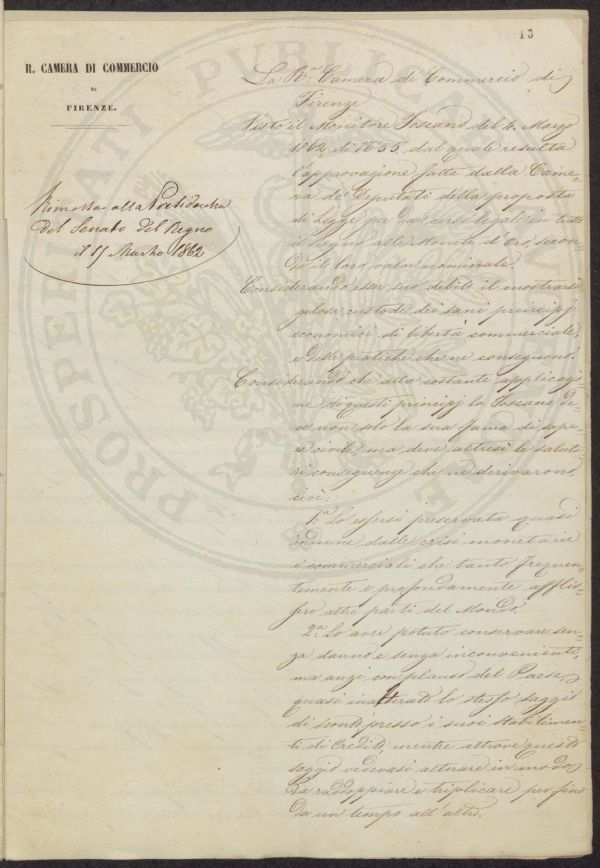 13
R. CAMERA DI COMMERCIO
DI
FIRENZE.
Rimessa alla Presidenza
del Senato del Regno
il 15 Marzo 1862
La R.ª Camera di Commercio di
Firenze
Visto il Monitore Toscano del 4. Marzo
1862, di N.º 55. dal quale resulta
l'approvazione fatta dalla Came-
ra de' Deputati della proposta
di Legge per dar corso legale in tutto
il Regno alle Monete d'Oro, secon-
do il loro valor nominale.
Considerando esser suo debito il mostrarsi
gelosa custode dei sani principj
economici di libertà commerciale,
e delle pratiche che ne conseguono.
Considerando che alla costante applicazio-
ne di questi principj la Toscana de-
ve non solo la sua fama di sape-
re civile, ma deve altresì le saluta-
ri conseguenze che ne derivarono,
cioè:
1.ª Lo essersi preservata quasi
indenne dalle crisi monetarie
e commerciali che tanto frequen-
temente e profondamente afflis-
sero altre parti del Mondo.
2.ª Lo aver potuto conservare sen-
za danno e senza inconveniente,
ma anzi con plauso del Paese,
quasi inalterato lo stesso saggio
di sconto presso i suoi Stabilimen-
ti di Credito, mentre altrove questo
saggio vedevasi alterare in modo
da raddoppiare e triplicare per fino
da un tempo all'altro.
PROSPERITATI PUBLICAE